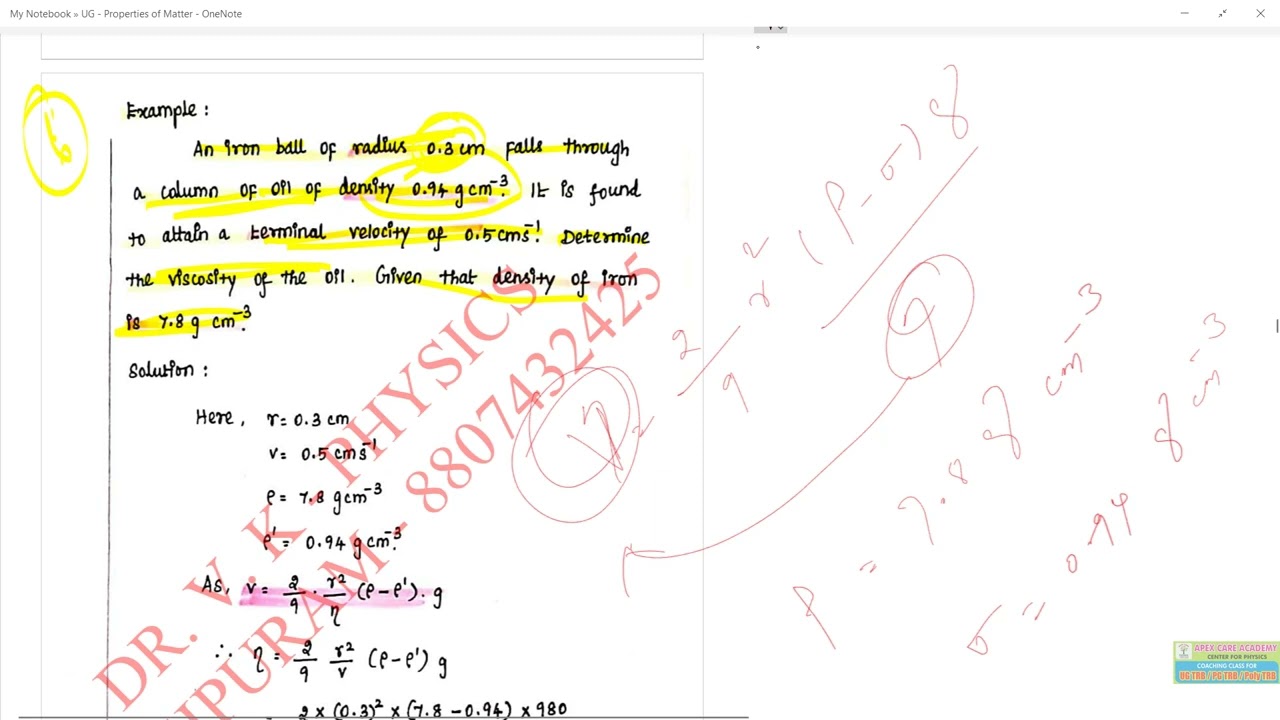 My Notebook » UG - Properties of Matter - OneNote
Example :
An iron ball of radius 0.3 cm falls through
a column of oil of density 0.94 g cm⁻³. It is found
to attain a terminal velocity of 0.5 cms⁻¹. Determine
the viscosity of the oil. Given that density of iron
is 7.8 g cm⁻³.
Solution :
Here, r = 0.3 cm
v = 0.5 cms⁻¹
ρ = 7.8 gcm⁻³
ρ' = 0.94 gcm⁻³.
As, v = 2/9 · r²/η (ρ-ρ') · g
∴ η = 2/9 r²/v (ρ-ρ') g
= 2 × (0.3)² × (7.8 - 0.94) × 980
2/9 r² (ρ-σ) g
η
ρ = 7.8 g cm⁻³
σ = 0.94 g cm⁻³
DR. V. K. PHYSICS
IPURAM - 8807432425
APEX CARE ACADEMY
CENTER FOR PHYSICS
COACHING CLASS FOR
UG TRB / PG TRB / Poly TRB